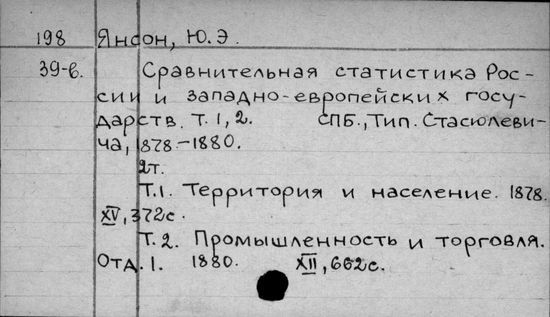 198 Янсон, Ю.Э.
39-в. Сравнительная статистика Рос-
сии и западно-европейских госу-
дарств. Т. 1, 2. СПБ., Тип. Стасюлеви-
ча, 1878.-1880.
2т.
Т.1. Территория и население. 1878.
XV, 372с.
Т.2. Промышленность и торговля.
Отд. 1. 1880. XII, 662с.